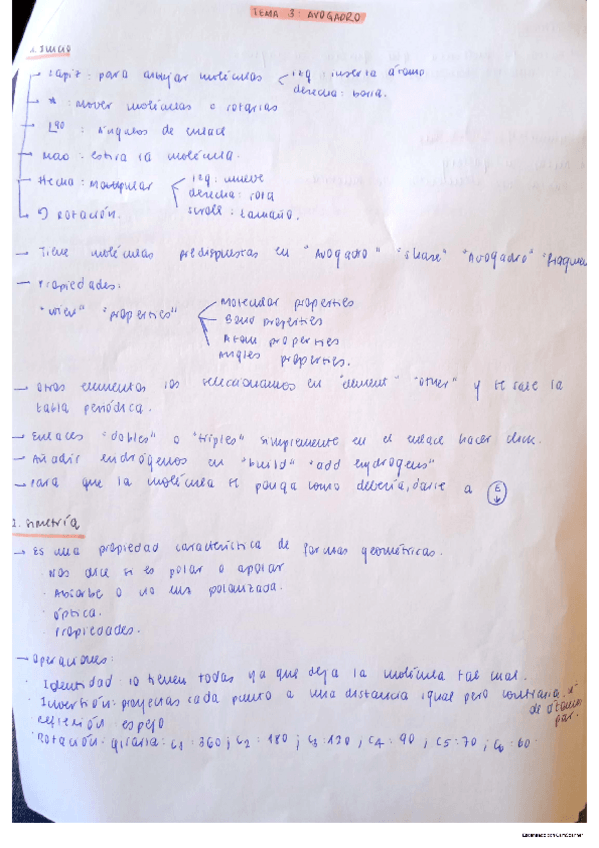 TEMA 3: AVOGADRO
1. INICIO
→ Lapiz: para dibujar moléculas izq: inserta átomo
derecha: borra.
→ * : mover moléculas o rotarlas
→ L90 : ángulos de enlace
→ mano: estira la molécula.
→ Flecha: manipular izq: mueve
derecha: rota
scroll: tamaño.
ROTACIÓN.
→ Tiene moléculas predispuestas en "Avogadro" "share" "Avogadro" "fragmen
→ Propiedades:
"view" "properties" Molecular properties
Bond properties
Atom properties
Angles properties.
→ Otros elementos los seleccionamos en "element" "other" y te sale la
tabla periódica.
→ Enlaces "dobles" o "triples" simplemente en el enlace hacer click.
→ Añadir hidrógenos en "build" "add hydrogens"
→ Para que la molécula se ponga como debería, darle a E↓
2. SIMETRÍA
→ Es una propiedad característica de formas geométricas.
· Nos dice si es polar o apolar
· Absorbe o no luz polarizada.
· óptica.
· Propiedades.
→ Operaciones:
· Identidad: la tienen todas ya que deja la molécula tal cual.
· Inversión: proyectas cada punto a una distancia igual pero contraria.
de átomos
par.
· Reflexión: espejo
· Rotación: girarla: C1: 360; C2: 180; C3: 120; C4: 90; C5: 70; C6: 60